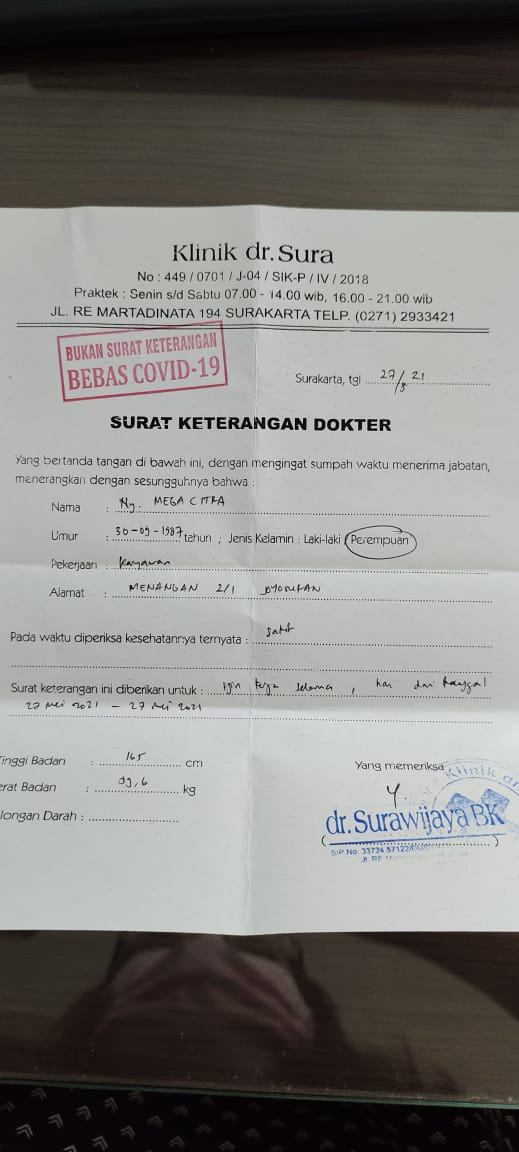 Klinik dr.Sura
No : 449 / 0701 / J-04 / SIK-P / IV / 2018
Praktek : Senin s/d Sabtu 07.00 - 14.00 wib, 16.00 - 21.00 wib
JL. RE MARTADINATA 194 SURAKARTA TELP. (0271) 2933421
BUKAN SURAT KETERANGAN
BEBAS COVID-19
Surakarta, tgl 27/5 21
SURAT KETERANGAN DOKTER
Yang bertanda tangan di bawah ini, dengan mengingat sumpah waktu menerima jabatan,
menerangkan dengan sesungguhnya bahwa :
Nama : Ny. MEGA CITRA
Umur : 30-09-1987 tahun ; Jenis Kelamin : Laki-laki / Perempuan
Pekerjaan :
Alamat : MENANGAN 2/1
Pada waktu diperiksa kesehatannya ternyata : sakit
Surat keterangan ini diberikan untuk : selama 1 hari dari tanggal
27 Mei 2021 - 27 Mei 2021
Tinggi Badan : 165 cm
erat Badan : kg
longan Darah :
Yang memeriksa
Klinik dr
dr.Surawijaya BK
SIP No. 33724.57122